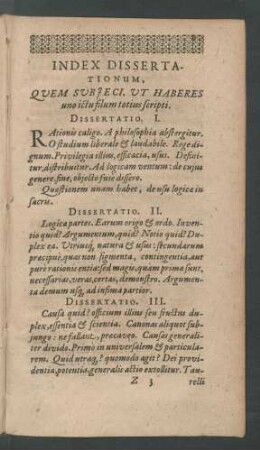 INDEX DISSERTA-
TIONUM,
QVEM SVBJECI, UT HABERES
uno ictu filum totius scripti.
DISSERTATIO. I.
RAtionis caligo. A philosophia abstergitur.
O studium liberale & laudabile. Rege di-
gnum. Privilegia illius, efficacia, usus. Defici-
tur, distribuitur. Ad logicam ventum: de cujus
genere, fine, objecto fuse dissero.
Quæstionem unam habet, de usu logicæ in
sacris.
DISSERTATIO. II.
Logicæ partes. Earum origo & ordo. Inven-
tio quid? Argumentum, quid? Notio quid? Du-
plex ea. Utriusq, natura & usus: secundarum
præcipue, quas non figmenta, contingentia, aut
pure rationis entia: sed magis, quàm prima sunt,
necessarias, veras, certas, demonstro. Argumen-
ta demum usq, ad infima partior.
DISSERTATIO. III.
Causa quid? officium illius seu functus du-
plex, essentiæ & scientiæ. Canonas aliquot sub-
jungo: ne fallant, præcaveo. Causas generali-
ter divido. Primo in universalem & particula-
rem. Quid utraq,? quomodo agit? Dei provi-
dentia, potentia, generalis actio extollitur. Tau-
Z 3 relli